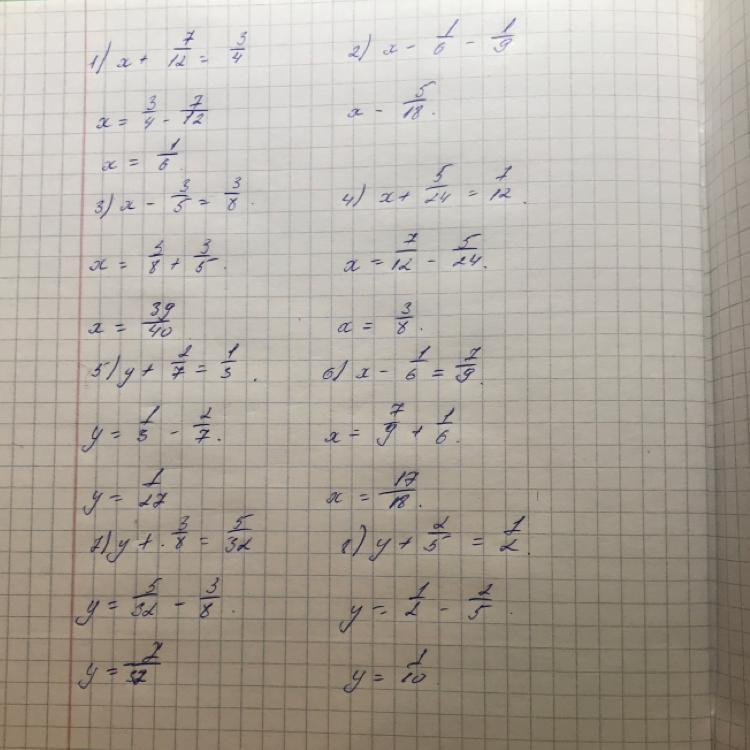 1) x + 7/12 = 3/4
x = 3/4 - 7/12
x = 1/6
2) x - 1/6 - 1/9
x - 5/18.
3) x - 3/5 = 3/8.
x = 3/8 + 3/5.
x = 39/40
4) x + 5/24 = 7/12.
x = 7/12 - 5/24.
x = 3/8.
5) y + 2/7 = 1/3.
y = 1/3 - 2/7.
y = 1/27
6) x - 1/6 = 7/9.
x = 7/9 + 1/6.
x = 17/18.
7) y + 3/8 = 5/32
y = 5/32 - 3/8.
y = 7/32
8) y + 2/5 = 1/2.
y = 1/2 - 2/5.
y = 1/10